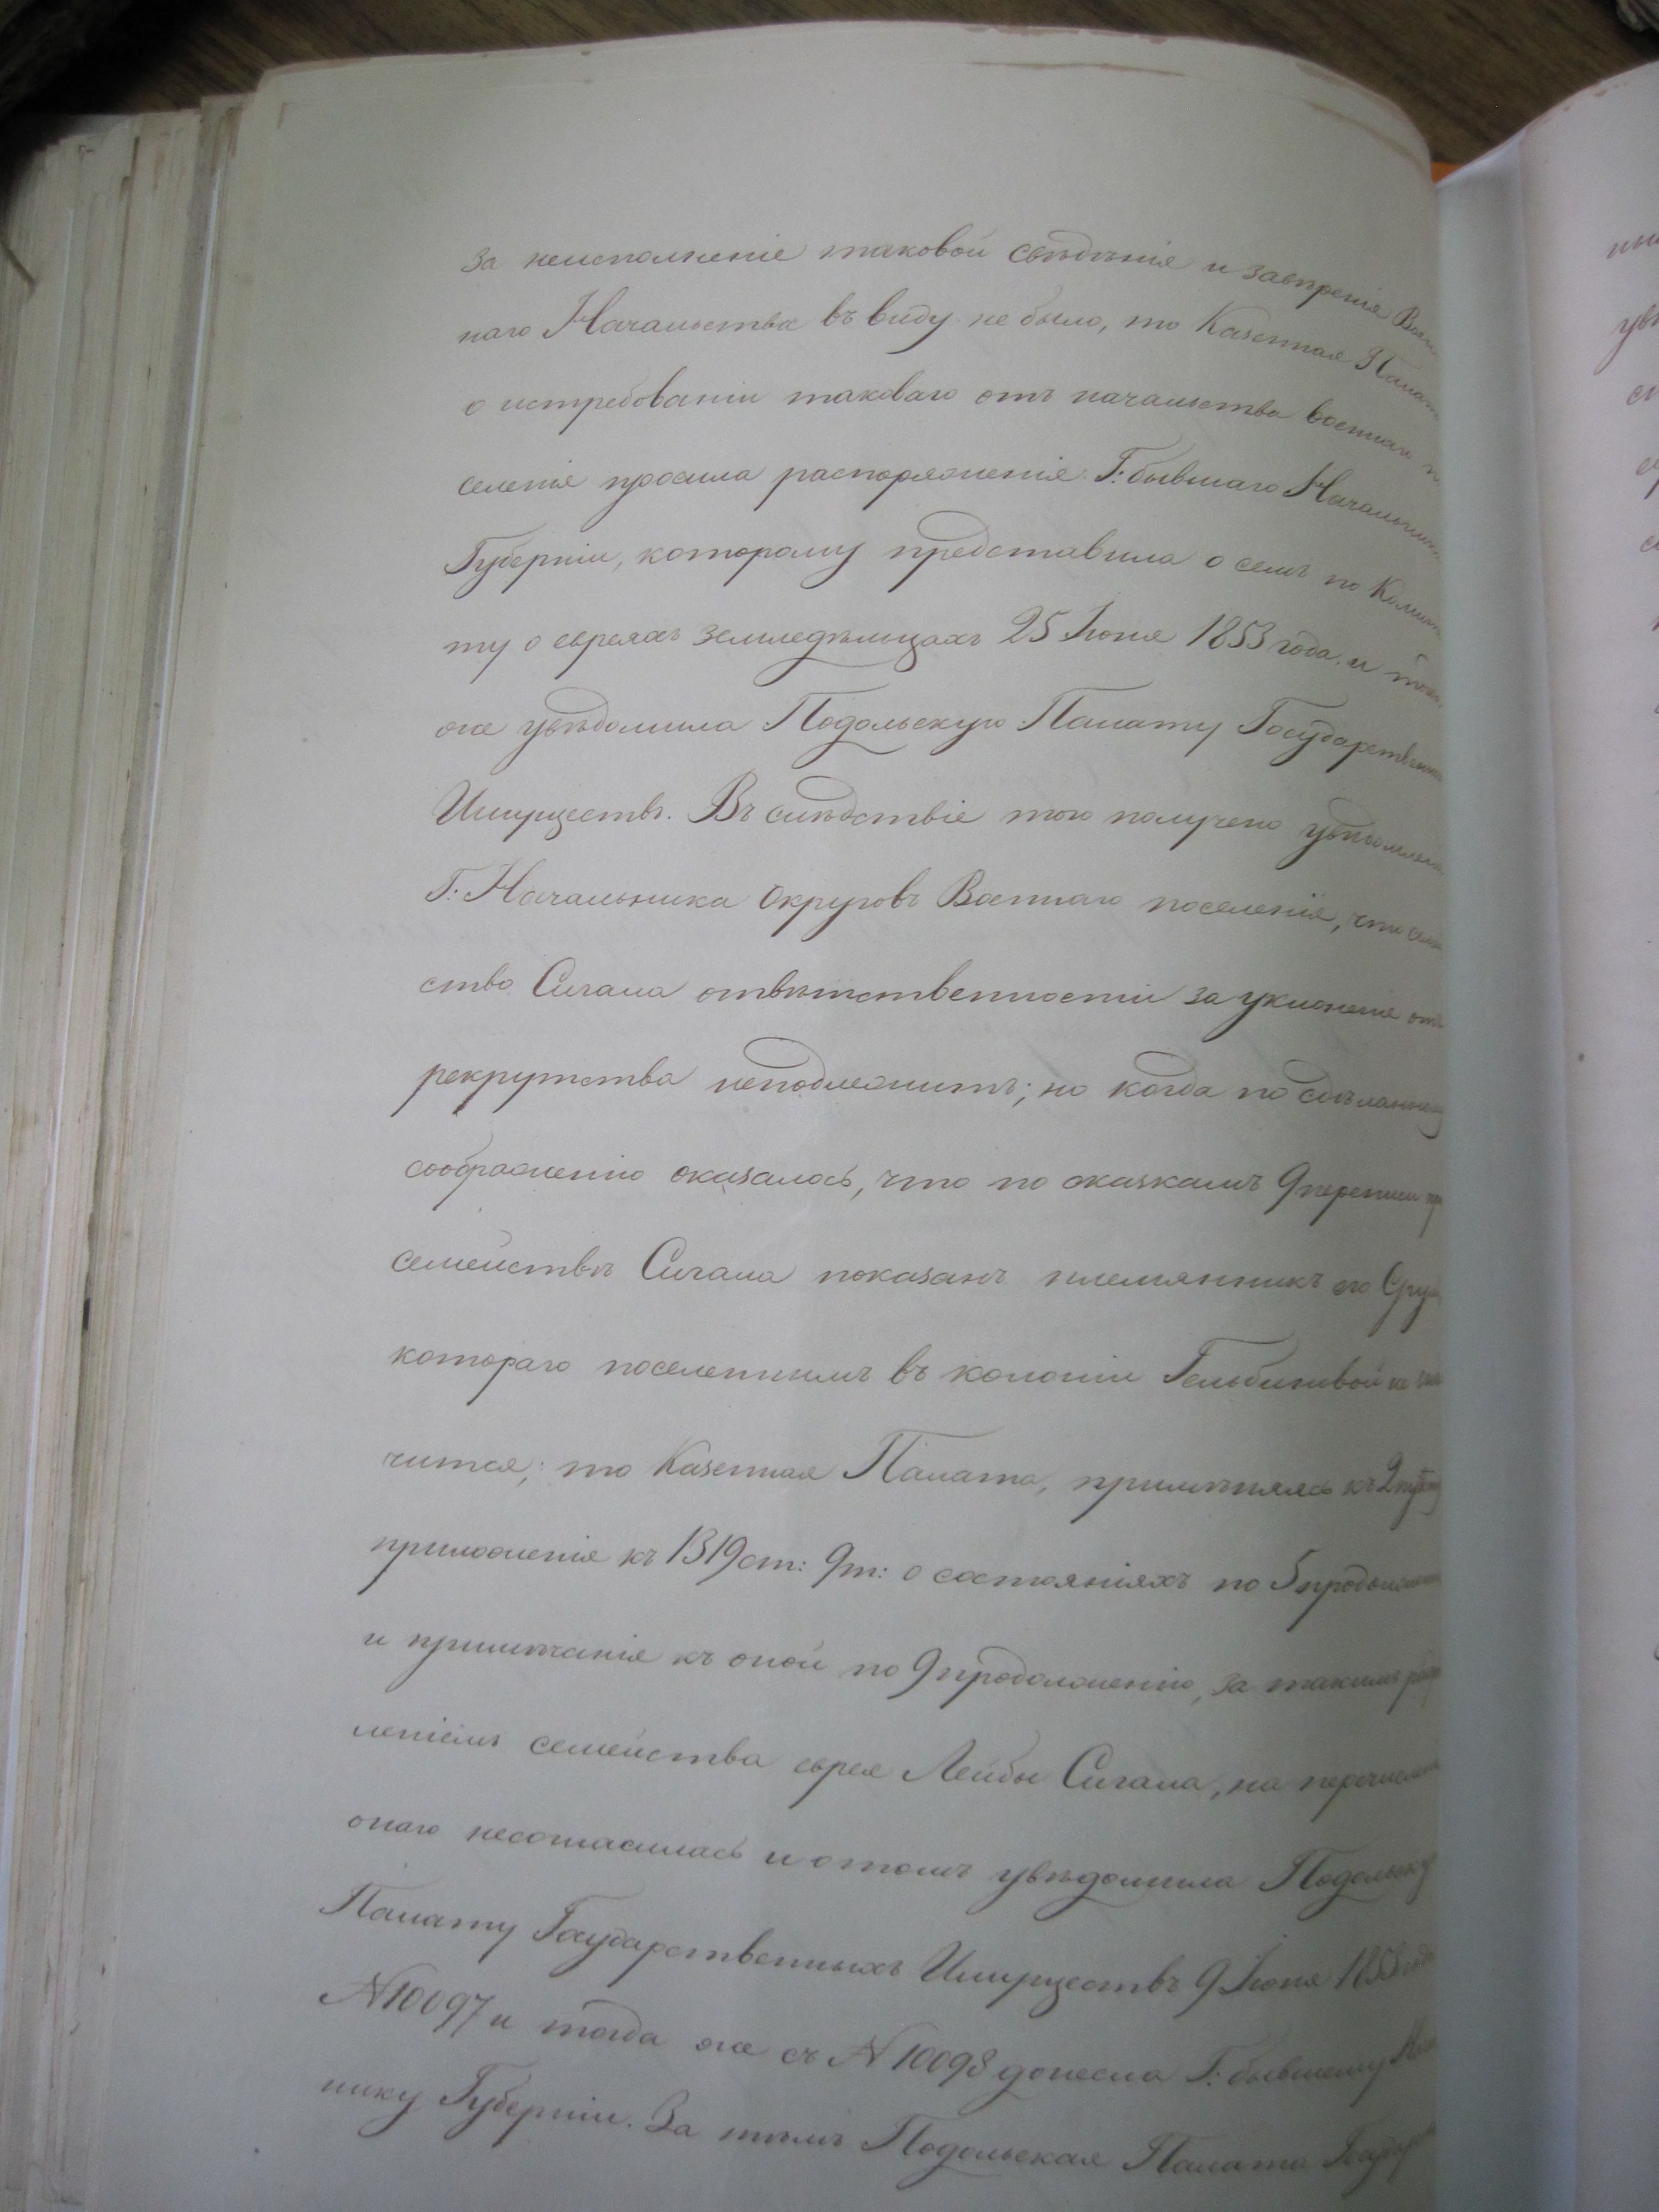 за неисполненіе таковой свѣдѣнія и завѣренія Воен
наго Начальства въ виду не было, то Казенная Палат
о истребованіи таковаго отъ начальства военнаго п
селенія просила распоряженія Г: бывшаго Начальник
Губерніи, которому представила о семъ по Комит
ту о евреяхъ земледѣльцахъ 25 Іюня 1853 года, и тогда
же увѣдомила Подольскую Палату Государственн
Имуществъ. Въ слѣдствіе того получено увѣдомлен
Г: Начальника Округовъ Военнаго поселенія, что семей
ство Сигала отвѣтственности за уклоненіе отъ
рекрутства неподлежитъ; но когда по сдѣланному
соображенію оказалось, что по сказкамъ 9 переписи пр
семействѣ Сигала показанъ племянникъ его Сруль
котораго поселеннымъ въ колоніи Гельбиновой не зна
чится; то Казенная Палата, примѣняясь къ 2 пункту
приложенія къ 1319 ст: 9 т: о состояніяхъ по 5 продолжен
и примѣчанія къ оной по 9 продолженію, за такимъ разд
леніемъ семейства еврея Лейбы Сигала, на перечислен
онаго несогласилась и отомъ увѣдомила Подольску
Палату Государственныхъ Имуществъ 9 Іюня 1855 года
N 10097 и тогда же съ N 10098 донесла Г: бывшему Нача
нику Губерніи. За тѣмъ Подольская Палата Государ